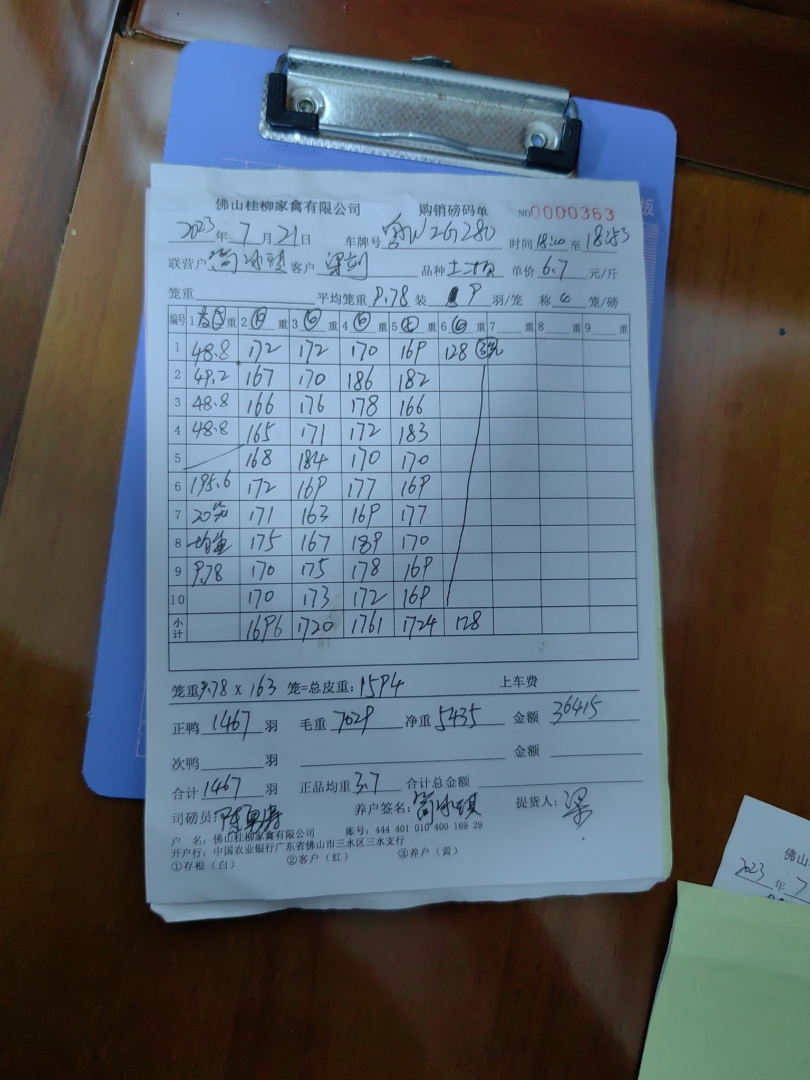 佛山桂柳家禽有限公司 购销磅码单 NO0000363
2023年7月21日 车牌号 W2G280 时间 至
联营户 客户 品种土 单价6.7元/斤
笼重 平均笼重9.78装 9羽/笼 称6笼/磅
编号 1 重 2 重 3 重 4 重 5 重 6 重 7 重 8 重 9 重
1 48.8 172 172 170 169 128
2 49.2 167 170 186 182
3 48.8 166 176 178 166
4 48.8 165 171 172 183
5 168 184 170 170
6 195.6 172 169 177 169
7 20笼 171 163 169 177
8 均重 175 167 189 170
9 9.78 170 175 178 169
10 170 173 172 169
小计 1696 1720 1761 1724 128
笼重9.78×163笼=总皮重:1594 上车费
正鸭1467羽 毛重7029 净重5435 金额36415
次鸭 羽 金额
合计1467羽 正品均重3.7 合计总金额
司磅员: 养户签名: 提货人:梁
户 名:佛山桂柳家禽有限公司 账号:444 401 010 400 169 29
开户行:中国农业银行广东省佛山市三水区三水支行
①存根(白) ②客户(红) ③养户(黄)
佛山
2023年7